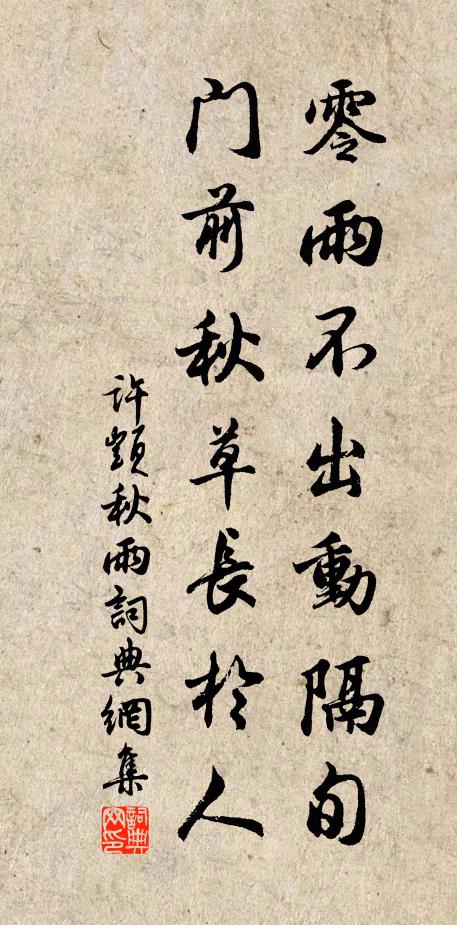 零雨不出動隔旬
門前秋草長於人
許顗秋雨詞典網集
詞典网印